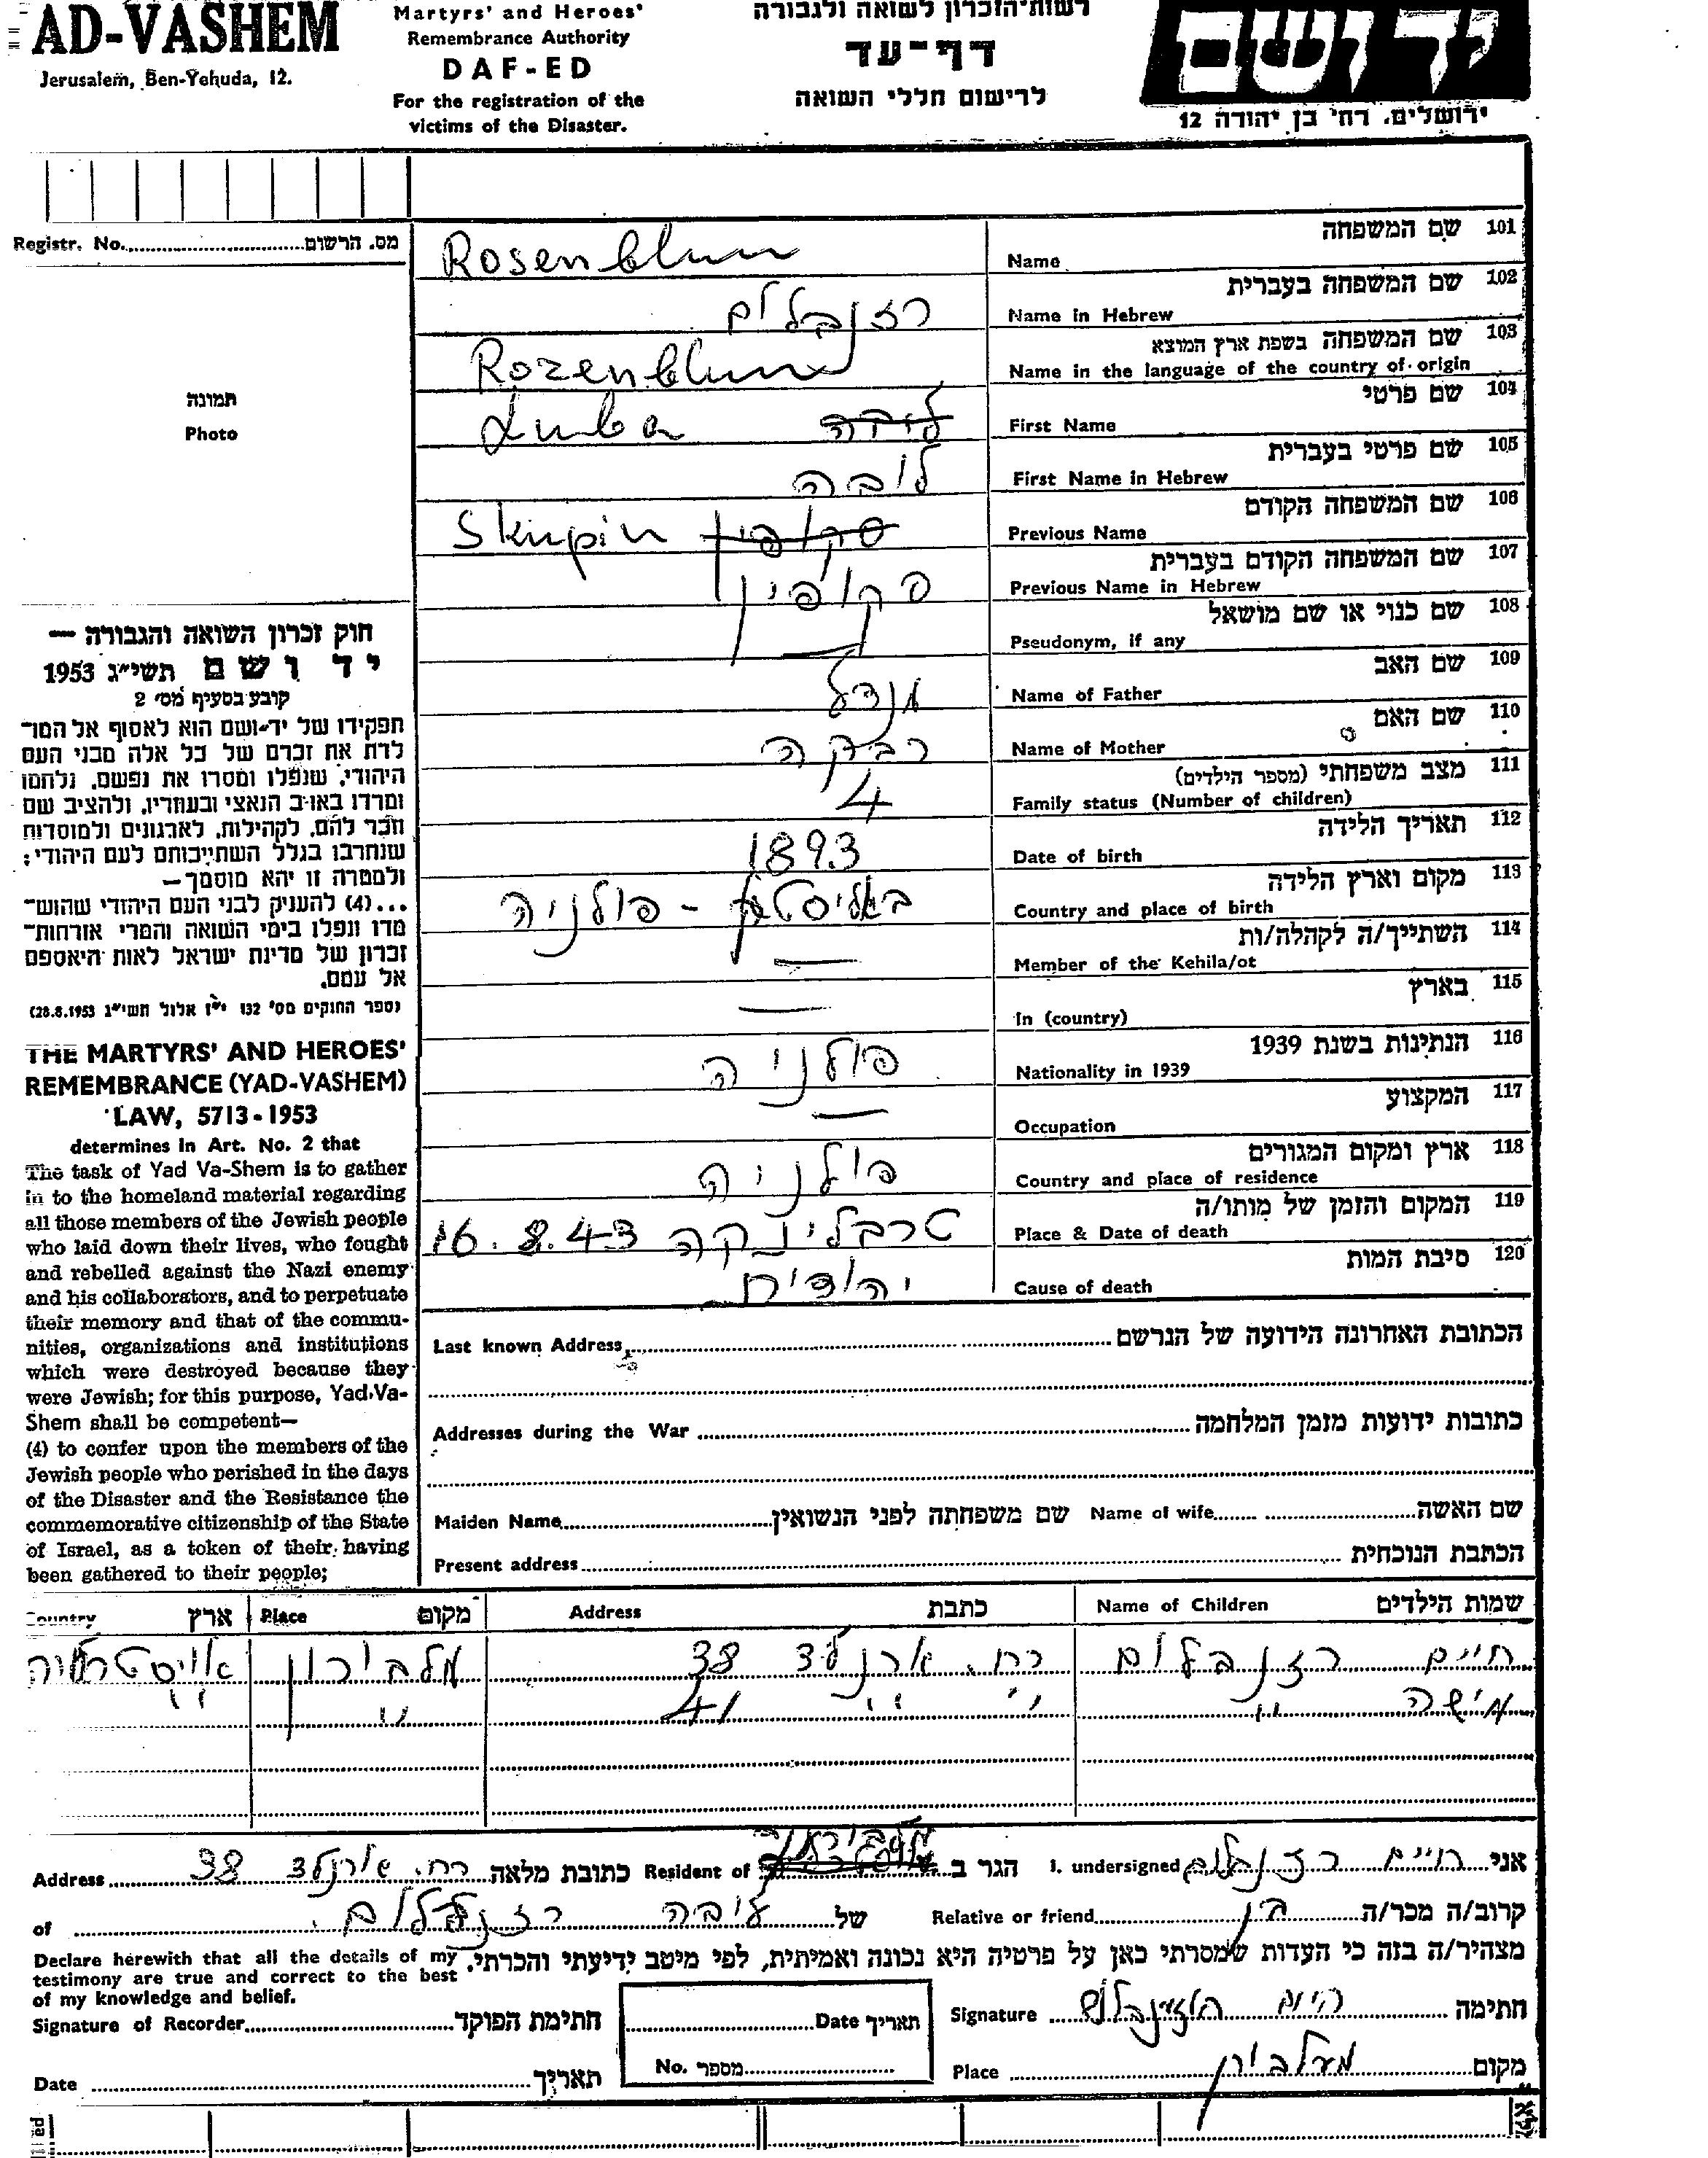 AD-VASHEM
Jerusalem, Ben-Yehuda, 12.
Martyrs' and Heroes'
Remembrance Authority
DAF-ED
For the registration of the
victims of the Disaster.
רשות-הזכרון לשואה ולגבורה
דף-עד
לרישום חללי השואה
יד ושם
ירושלים, רח' בן יהודה 12
Registr. No. מס. הרשום
תמונה
Photo
חוק זכרון השואה והגבורה —
יד ושם תשי״ג 1953
קובע בסעיף מס' 2
תפקידו של יד-ושם הוא לאסוף אל המו־
לדת את זכרם של כל אלה מבני העם
היהודי, שנפלו ומסרו את נפשם, נלחמו
ומרדו באויב הנאצי ובעוזריו, ולהציב שם
וזכר להם, לקהילות, לארגונים ולמוסדות
שנחרבו בגלל השתייכותם לעם היהודי;
ולמטרה זו יהא מוסמך—
...(4) להעניק לבני העם היהודי שהוש־
מדו ונפלו בימי השואה והמרי אזרחות־
זכרון של מדינת ישראל לאות היאספם
אל עמם.
(ספר החוקים מס' 132 י״ז אלול תשי״ג 28.8.1953)
THE MARTYRS' AND HEROES'
REMEMBRANCE (YAD-VASHEM)
LAW, 5713-1953
determines in Art. No. 2 that
The task of Yad Va-Shem is to gather
in to the homeland material regarding
all those members of the Jewish people
who laid down their lives, who fought
and rebelled against the Nazi enemy
and his collaborators, and to perpetuate
their memory and that of the commu-
nities, organizations and institutions
which were destroyed because they
were Jewish; for this purpose, Yad-Va-
Shem shall be competent—
(4) to confer upon the members of the
Jewish people who perished in the days
of the Disaster and the Resistance the
commemorative citizenship of the State
of Israel, as a token of their having
been gathered to their people;
101 שם המשפחה
Name Rosenblum
102 שם המשפחה בעברית
Name in Hebrew רזנבלום
103 שם המשפחה בשפת ארץ המוצא
Name in the language of the country of origin Rozenblum
104 שם פרטי
First Name Luba
105 שם פרטי בעברית
First Name in Hebrew לובה
106 שם המשפחה הקודם
Previous Name סקופין Skupin
107 שם המשפחה הקודם בעברית
Previous Name in Hebrew סקופין
108 שם כנוי או שם מושאל
Pseudonym, if any —
109 שם האב
Name of Father מנדל
110 שם האם
Name of Mother רבקה
111 מצב משפחתי (מספר הילדים)
Family status (Number of children) 4
112 תאריך הלידה
Date of birth 1893
113 מקום וארץ הלידה
Country and place of birth באליסטוק - פולניה
114 השתייך/ה לקהלה/ות
Member of the Kehila/ot —
115 בארץ
In (country) —
116 הנתינות בשנת 1939
Nationality in 1939 פולניה
117 המקצוע
Occupation —
118 ארץ ומקום המגורים
Country and place of residence פולניה
119 המקום והזמן של מותו/ה
Place & Date of death טרבלינקה 16.8.43
120 סיבת המות
Cause of death יהודית
Last known Address הכתובת האחרונה הידועה של הנרשם
Addresses during the War כתובות ידועות מזמן המלחמה
Maiden Name שם משפחתה לפני הנשואין Name of wife שם האשה
Present address הכתבת הנוכחית
Country ארץ Place מקום Address כתבת Name of Children שמות הילדים
חיים רזנבלום רח. ארנלד 38 מלבורן אויסטרליה
מישה " " " 41 " "
אני חיים רזנבלום I, undersigned הגר ב Resident of כתובת מלאה רח. ארנלד 38 Address
קרוב/ה מכר/ה בן Relative or friend של לובה רזנבלום of
מצהיר/ה בזה כי העדות שמסרתי כאן על פרטיה היא נכונה ואמיתית, לפי מיטב ידיעתי והכרתי.
Declare herewith that all the details of my
testimony are true and correct to the best
of my knowledge and belief.
Signature of Recorder חתימת הפוקד
Date תאריך
תאריך Date
No. מספר
Signature חתימה
Place מקום מעלבורן